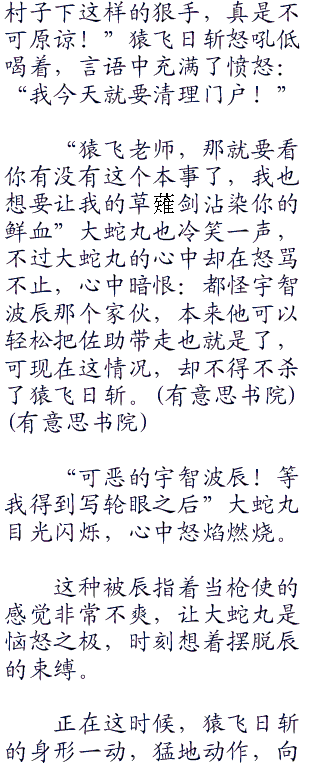 村子下这样的狠手，真是不
可原谅！”猿飞日斩怒吼低
喝着，言语中充满了愤怒：
“我今天就要清理门户！”
“猿飞老师，那就要看
你有没有这个本事了，我也
想要让我的草薙剑沾染你的
鲜血”大蛇丸也冷笑一声，
不过大蛇丸的心中却在怒骂
不止，心中暗恨：都怪宇智
波辰那个家伙，本来他可以
轻松把佐助带走也就是了，
可现在这情况，却不得不杀
了猿飞日斩。(有意思书院)
(有意思书院)
“可恶的宇智波辰！等
我得到写轮眼之后”大蛇丸
目光闪烁，心中怒焰燃烧。
这种被辰指着当枪使的
感觉非常不爽，让大蛇丸是
恼怒之极，时刻想着摆脱辰
的束缚。
正在这时候，猿飞日斩
的身形一动，猛地动作，向